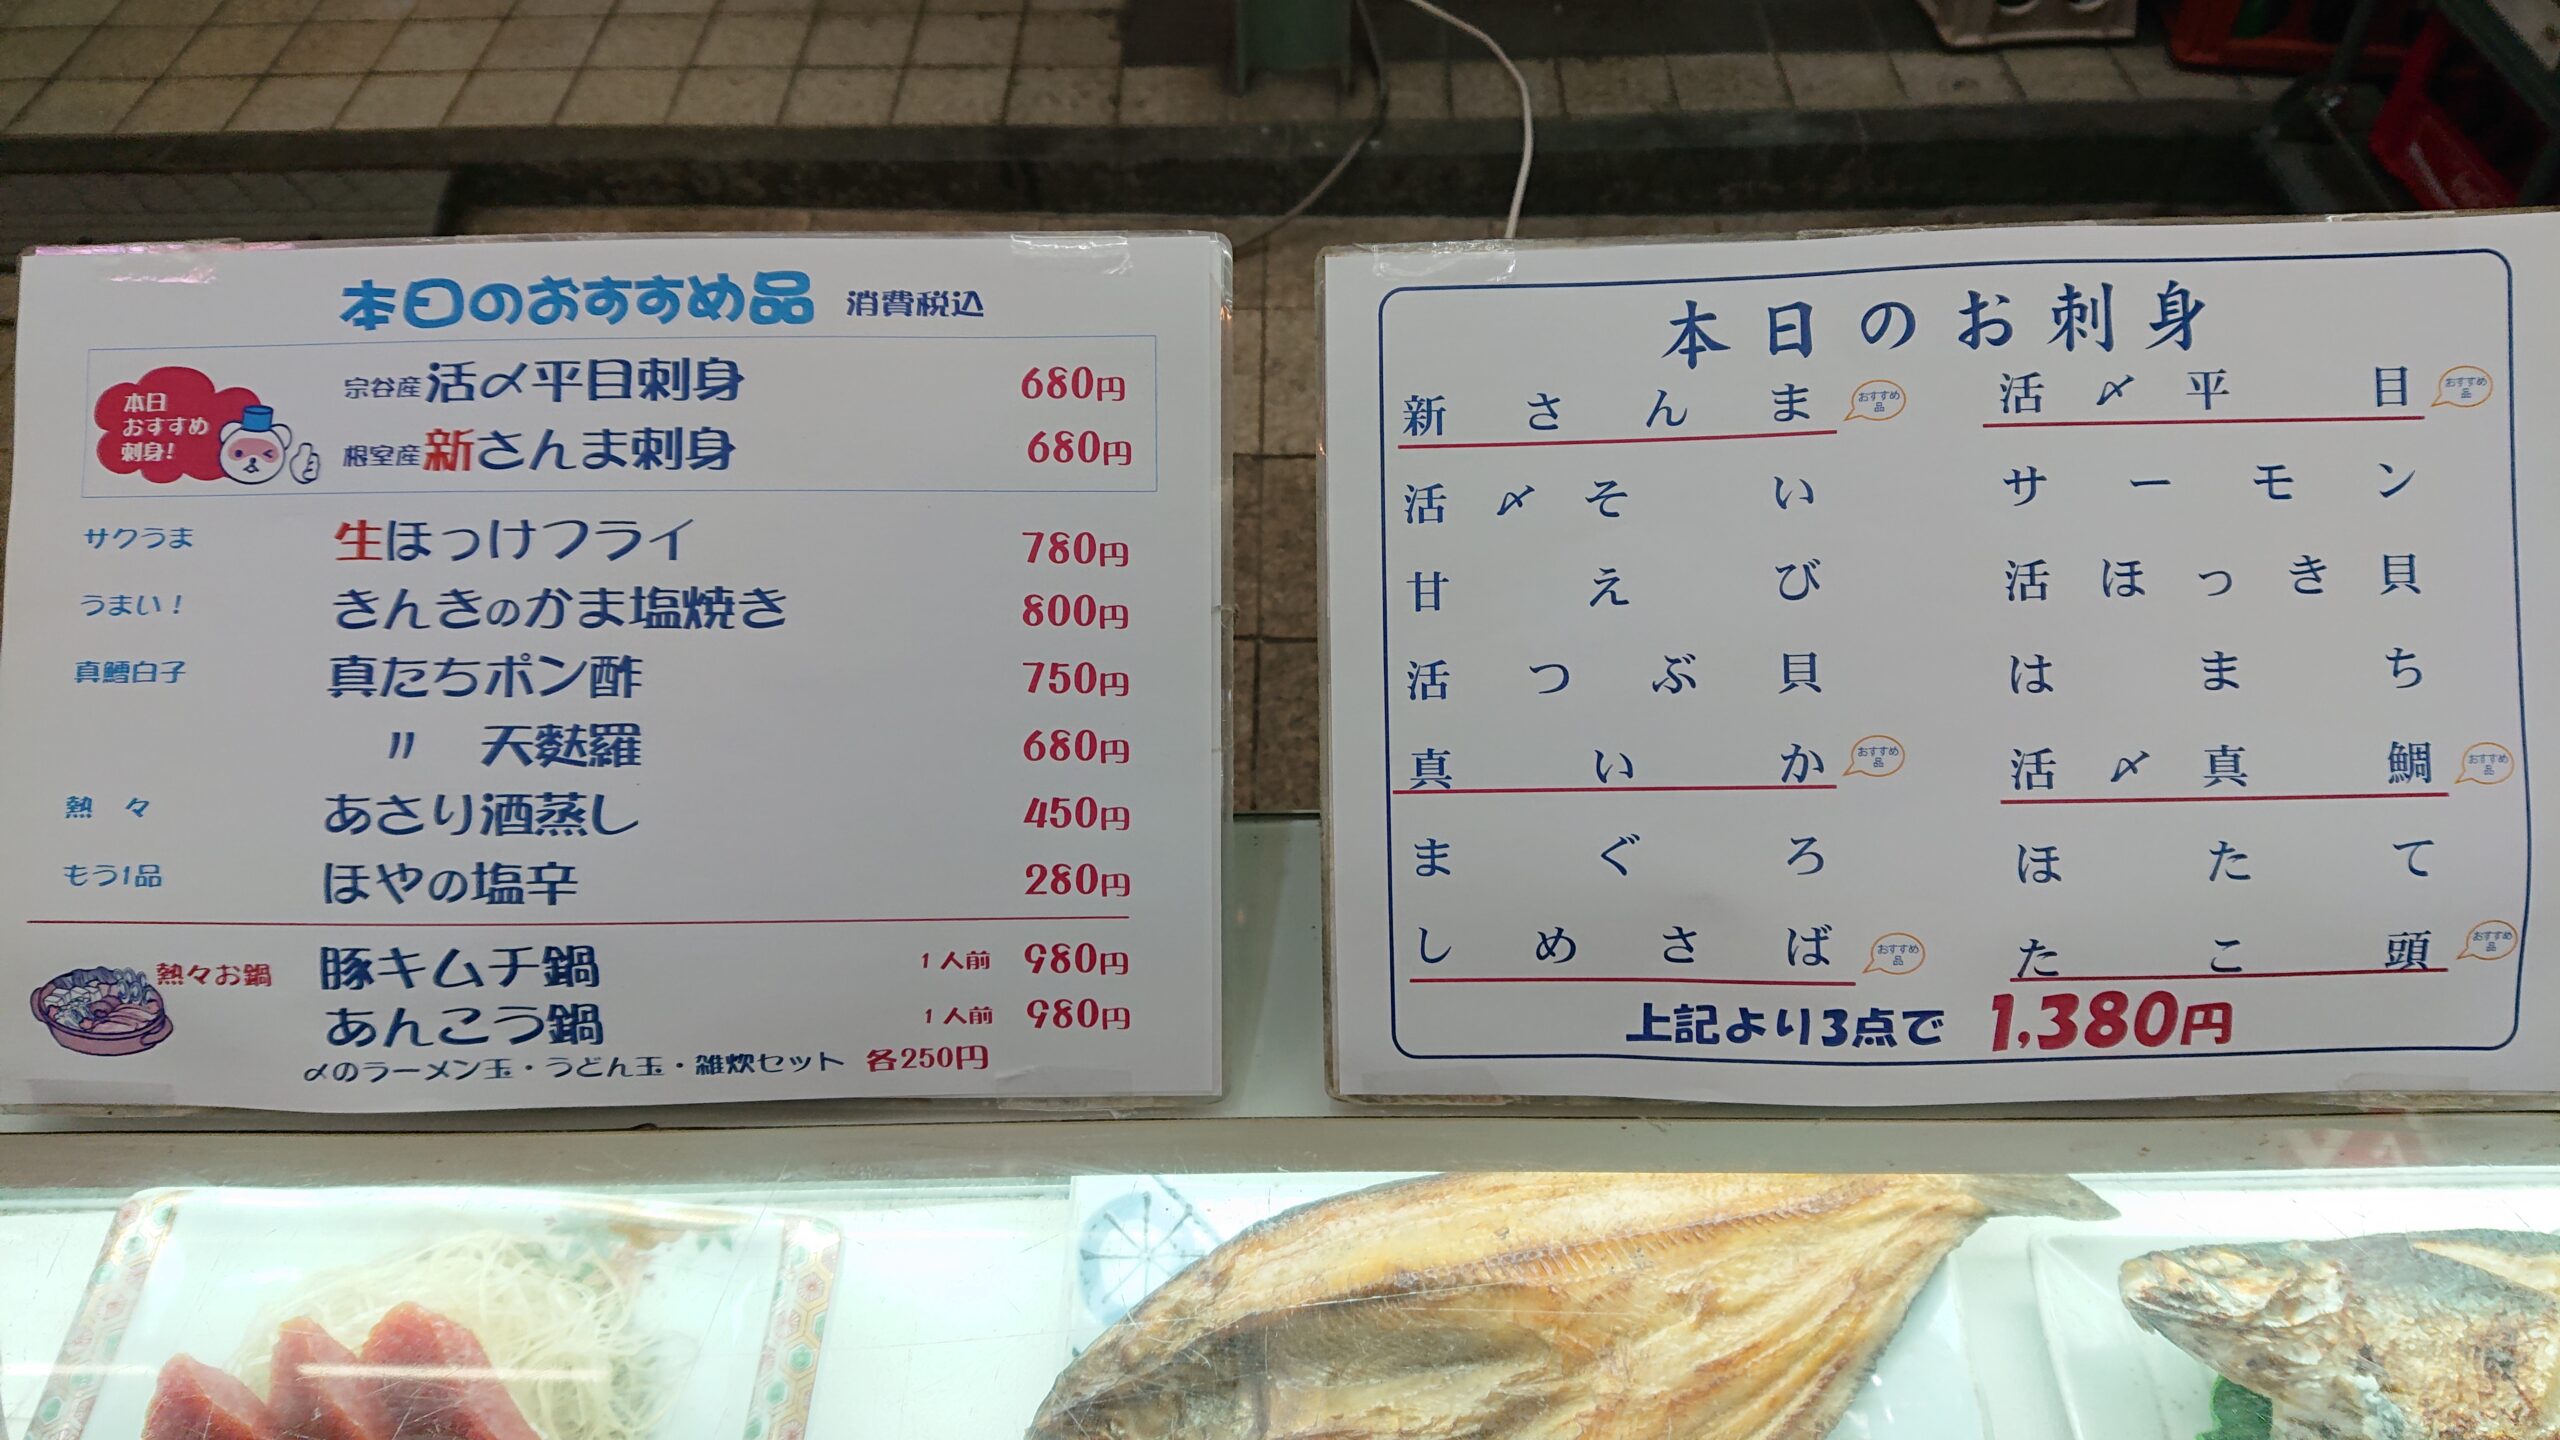 本日のおすすめ品 消費税込
本日
おすすめ
刺身!
宗谷産 活〆平目刺身 680円
根室産 新さんま刺身 680円
サクうま 生ほっけフライ 780円
うまい! きんきのかま塩焼き 800円
真鱈白子 真たちポン酢 750円
〃 天麩羅 680円
熱々 あさり酒蒸し 450円
もう1品 ほやの塩辛 280円
熱々お鍋
豚キムチ鍋 1人前 980円
あんこう鍋 1人前 980円
〆のラーメン玉・うどん玉・雑炊セット 各250円
本日のお刺身
新さんま おすすめ品
活〆そい
甘えび
活つぶ貝
真いか おすすめ品
まぐろ
しめさば おすすめ品
活〆平目 おすすめ品
サーモン
活ほっき貝
はまち
活〆真鯛 おすすめ品
ほたて
たこ頭 おすすめ品
上記より3点で 1,380円